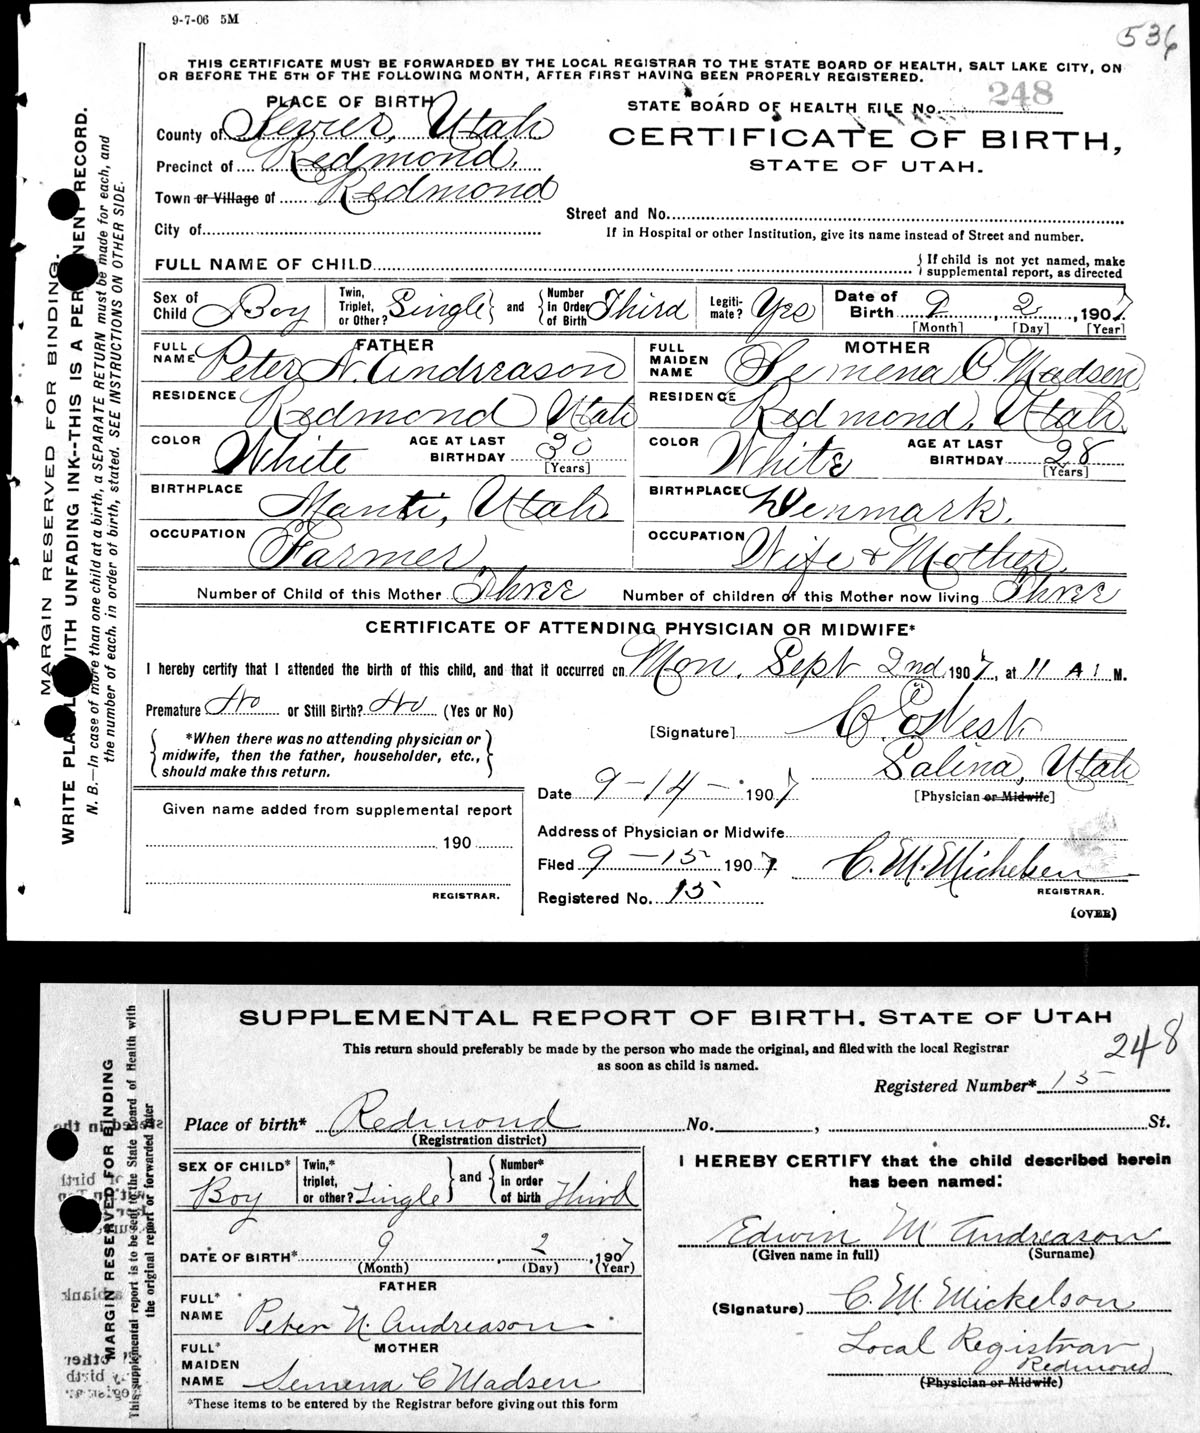 9-7-06 5M
536
THIS CERTIFICATE MUST BE FORWARDED BY THE LOCAL REGISTRAR TO THE STATE BOARD OF HEALTH, SALT LAKE CITY, ON
OR BEFORE THE 5TH OF THE FOLLOWING MONTH, AFTER FIRST HAVING BEEN PROPERLY REGISTERED.
PLACE OF BIRTH
STATE BOARD OF HEALTH FILE No. 248
County of Sevier, Utah
CERTIFICATE OF BIRTH,
STATE OF UTAH.
Precinct of Redmond,
Town or Village of Redmond
Street and No.
City of
If in Hospital or other Institution, give its name instead of Street and number.
FULL NAME OF CHILD
If child is not yet named, make supplemental report, as directed
Sex of Child Boy
Twin, Triplet, or Other? Single and Number in Order of Birth Third
Legitimate? Yes
Date of Birth 9, 2, 1907
[Month] [Day] [Year]
FATHER
FULL NAME Peter N. Andreason
RESIDENCE Redmond Utah
COLOR White AGE AT LAST BIRTHDAY 30
[Years]
BIRTHPLACE Manti, Utah
OCCUPATION Farmer
MOTHER
FULL MAIDEN NAME Semena C. Madsen
RESIDENCE Redmond, Utah
COLOR White AGE AT LAST BIRTHDAY 28
[Years]
BIRTHPLACE Denmark.
OCCUPATION Wife & Mother
Number of Child of this Mother Three Number of children of this Mother now living Three
CERTIFICATE OF ATTENDING PHYSICIAN OR MIDWIFE*
I hereby certify that I attended the birth of this child, and that it occurred on Mon. Sept 2nd 1907, at 11 A. M.
Premature No or Still Birth? No (Yes or No)
*When there was no attending physician or
midwife, then the father, householder, etc.,
should make this return.
[Signature] C. E. West
Salina, Utah
[Physician or Midwife]
Date 9-14- 1907
Given name added from supplemental report
190
REGISTRAR.
Address of Physician or Midwife
Filed 9-15 1907 C. M. Mickelsen
REGISTRAR.
Registered No. 15
(OVER)
MARGIN RESERVED FOR BINDING.
WRITE PLAINLY WITH UNFADING INK--THIS IS A PERMANENT RECORD.
N. B.—In case of more than one child at a birth, a SEPARATE RETURN must be made for each, and
the number of each, in order of birth, stated. SEE INSTRUCTIONS ON OTHER SIDE.
SUPPLEMENTAL REPORT OF BIRTH, STATE OF UTAH
This return should preferably be made by the person who made the original, and filed with the local Registrar
as soon as child is named.
248
Registered Number* 15
Place of birth* Redmond No. , St.
(Registration district)
SEX OF CHILD* Boy
Twin,* triplet, or other? Single and Number* in order of birth Third
DATE OF BIRTH* 9, 2, 1907
(Month) (Day) (Year)
FATHER
FULL* NAME Peter N. Andreason
MOTHER
FULL* MAIDEN NAME Semena C Madsen
*These items to be entered by the Registrar before giving out this form
I HEREBY CERTIFY that the child described herein
has been named:
Edwin M Andreason
(Given name in full) (Surname)
(Signature) C. M. Mickelson
Local Registrar
Redmond
(Physician or Midwife)
MARGIN RESERVED FOR BINDING
This supplemental report is to be sent to the State Board of Health with
the original report or forwarded later